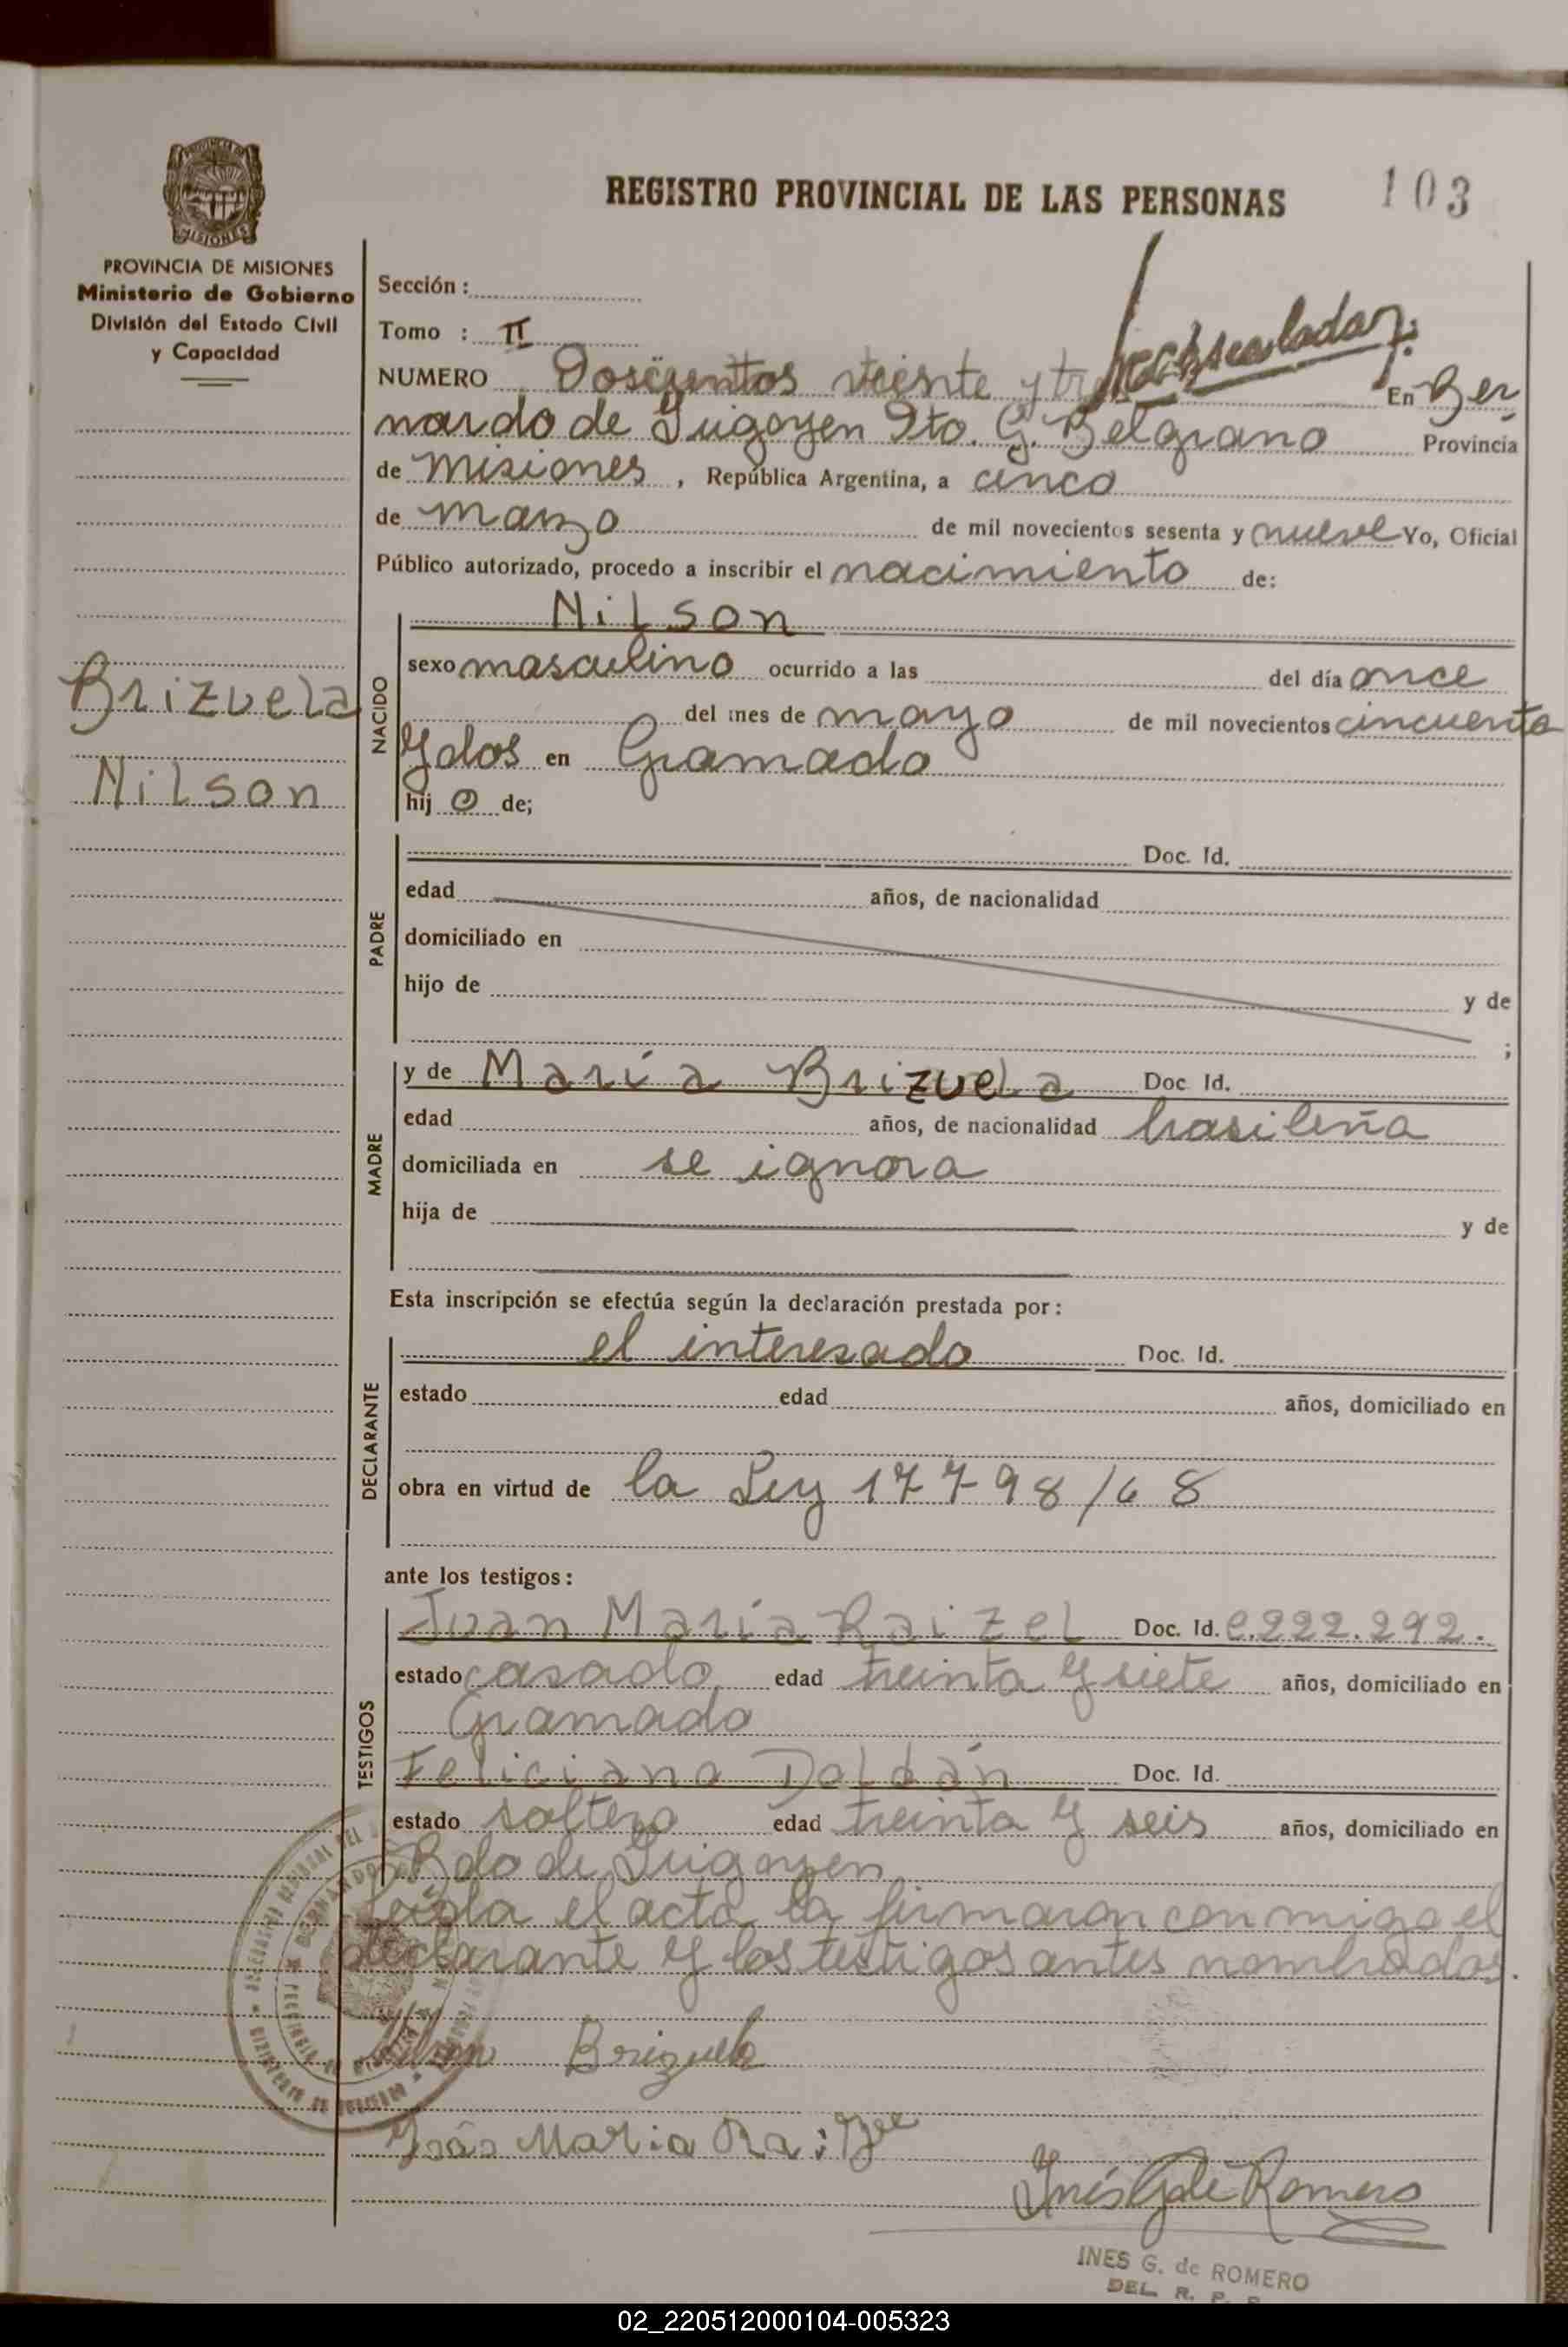 REGISTRO PROVINCIAL DE LAS PERSONAS 103
MISIONES
PROVINCIA DE MISIONES
Ministerio de Gobierno
División del Estado Civil
y Capacidad
Brizuela
Nilson
Sección :
Tomo : II
NUMERO Doscientos veinte y En Ber
nardo de Irigoyen Dto. G. Belgrano Provincia
de Misiones , República Argentina, a cinco
de marzo de mil novecientos sesenta y nueve Yo, Oficial
Público autorizado, procedo a inscribir el nacimiento de:
Nilson
NACIDO
sexo masculino ocurrido a las del día once
del mes de mayo de mil novecientos cincuenta
y dos en Gramado
hij o de;
PADRE
Doc. Id.
edad años, de nacionalidad
domiciliado en
hijo de y de
;
MADRE
y de María Brizuela Doc Id.
edad años, de nacionalidad brasileña
domiciliada en se ignora
hija de y de
Esta inscripción se efectúa según la declaración prestada por :
DECLARANTE
el interesado Doc. Id.
estado edad años, domiciliado en
obra en virtud de la Ley 17798/68
ante los testigos :
TESTIGOS
Juan María Raizel Doc. Id. C.222.292.
estado casado edad treinta y siete años, domiciliado en
Gramado
Feliciano Doldán Doc. Id.
estado soltero edad treinta y seis años, domiciliado en
Bdo de Irigoyen
Leída el acta la firmaron conmigo el
declarante y los testigos antes nombrados.
Nilson Brizuela
João Maria Raizel
Inés G de Romero
INES G. de ROMERO
DEL. R. P.
02_220512000104-005323